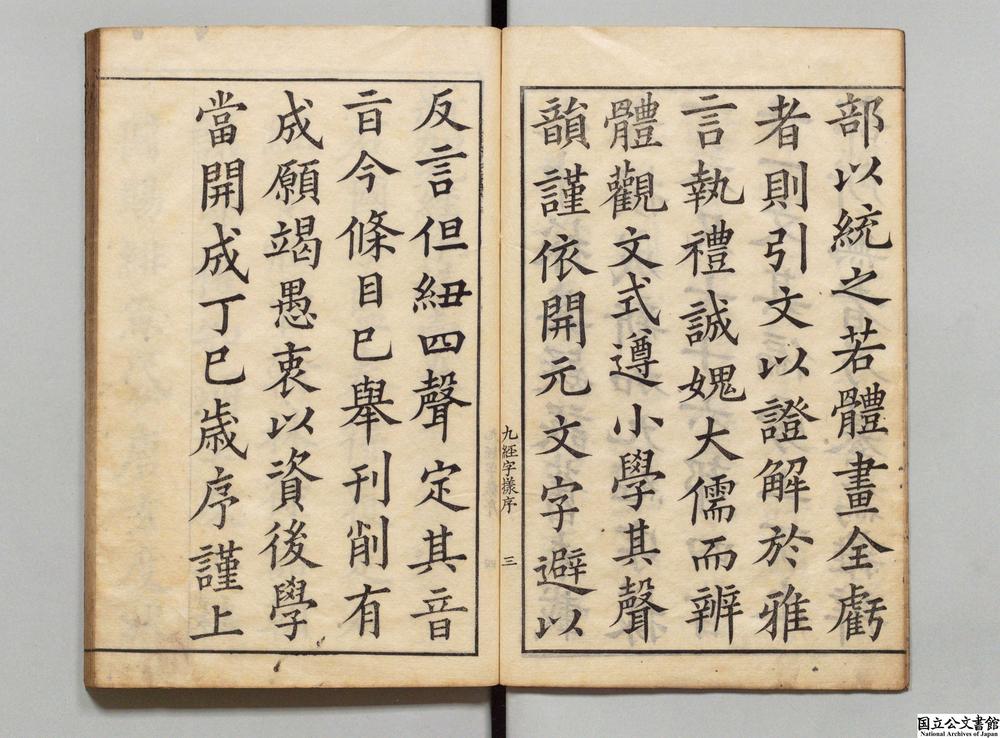 部以統之若體畫全虧
者則引文以證解於雅
言執禮誠媿大儒而辨
體觀文式遵小學其聲
韻謹依開元文字避以
九經字㨾序
三
反言但紐四聲定其音
㫖今條目已舉刊削有
成願竭愚衷以資後學
當開成丁巳歲序謹上
国立公文書館
National Archives of Japan